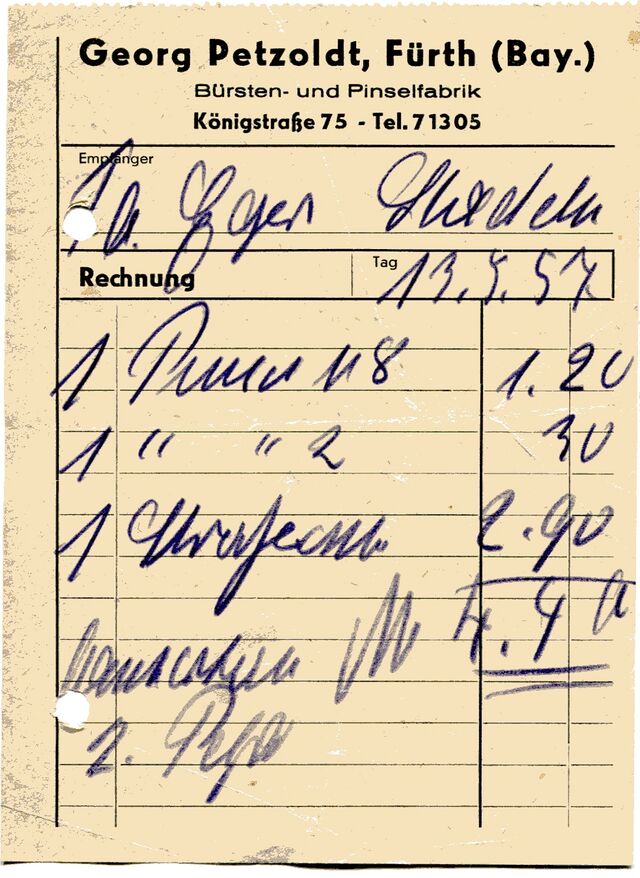 Georg Petzoldt, Fürth (Bay.)
Bürsten- und Pinselfabrik
Königstraße 75 - Tel. 71305
Empfänger
Fa. Egger
Rechnung Tag 13.5.57
1 Pinsel 18 1.20
1 " " 2 30
1 2.90
4.40